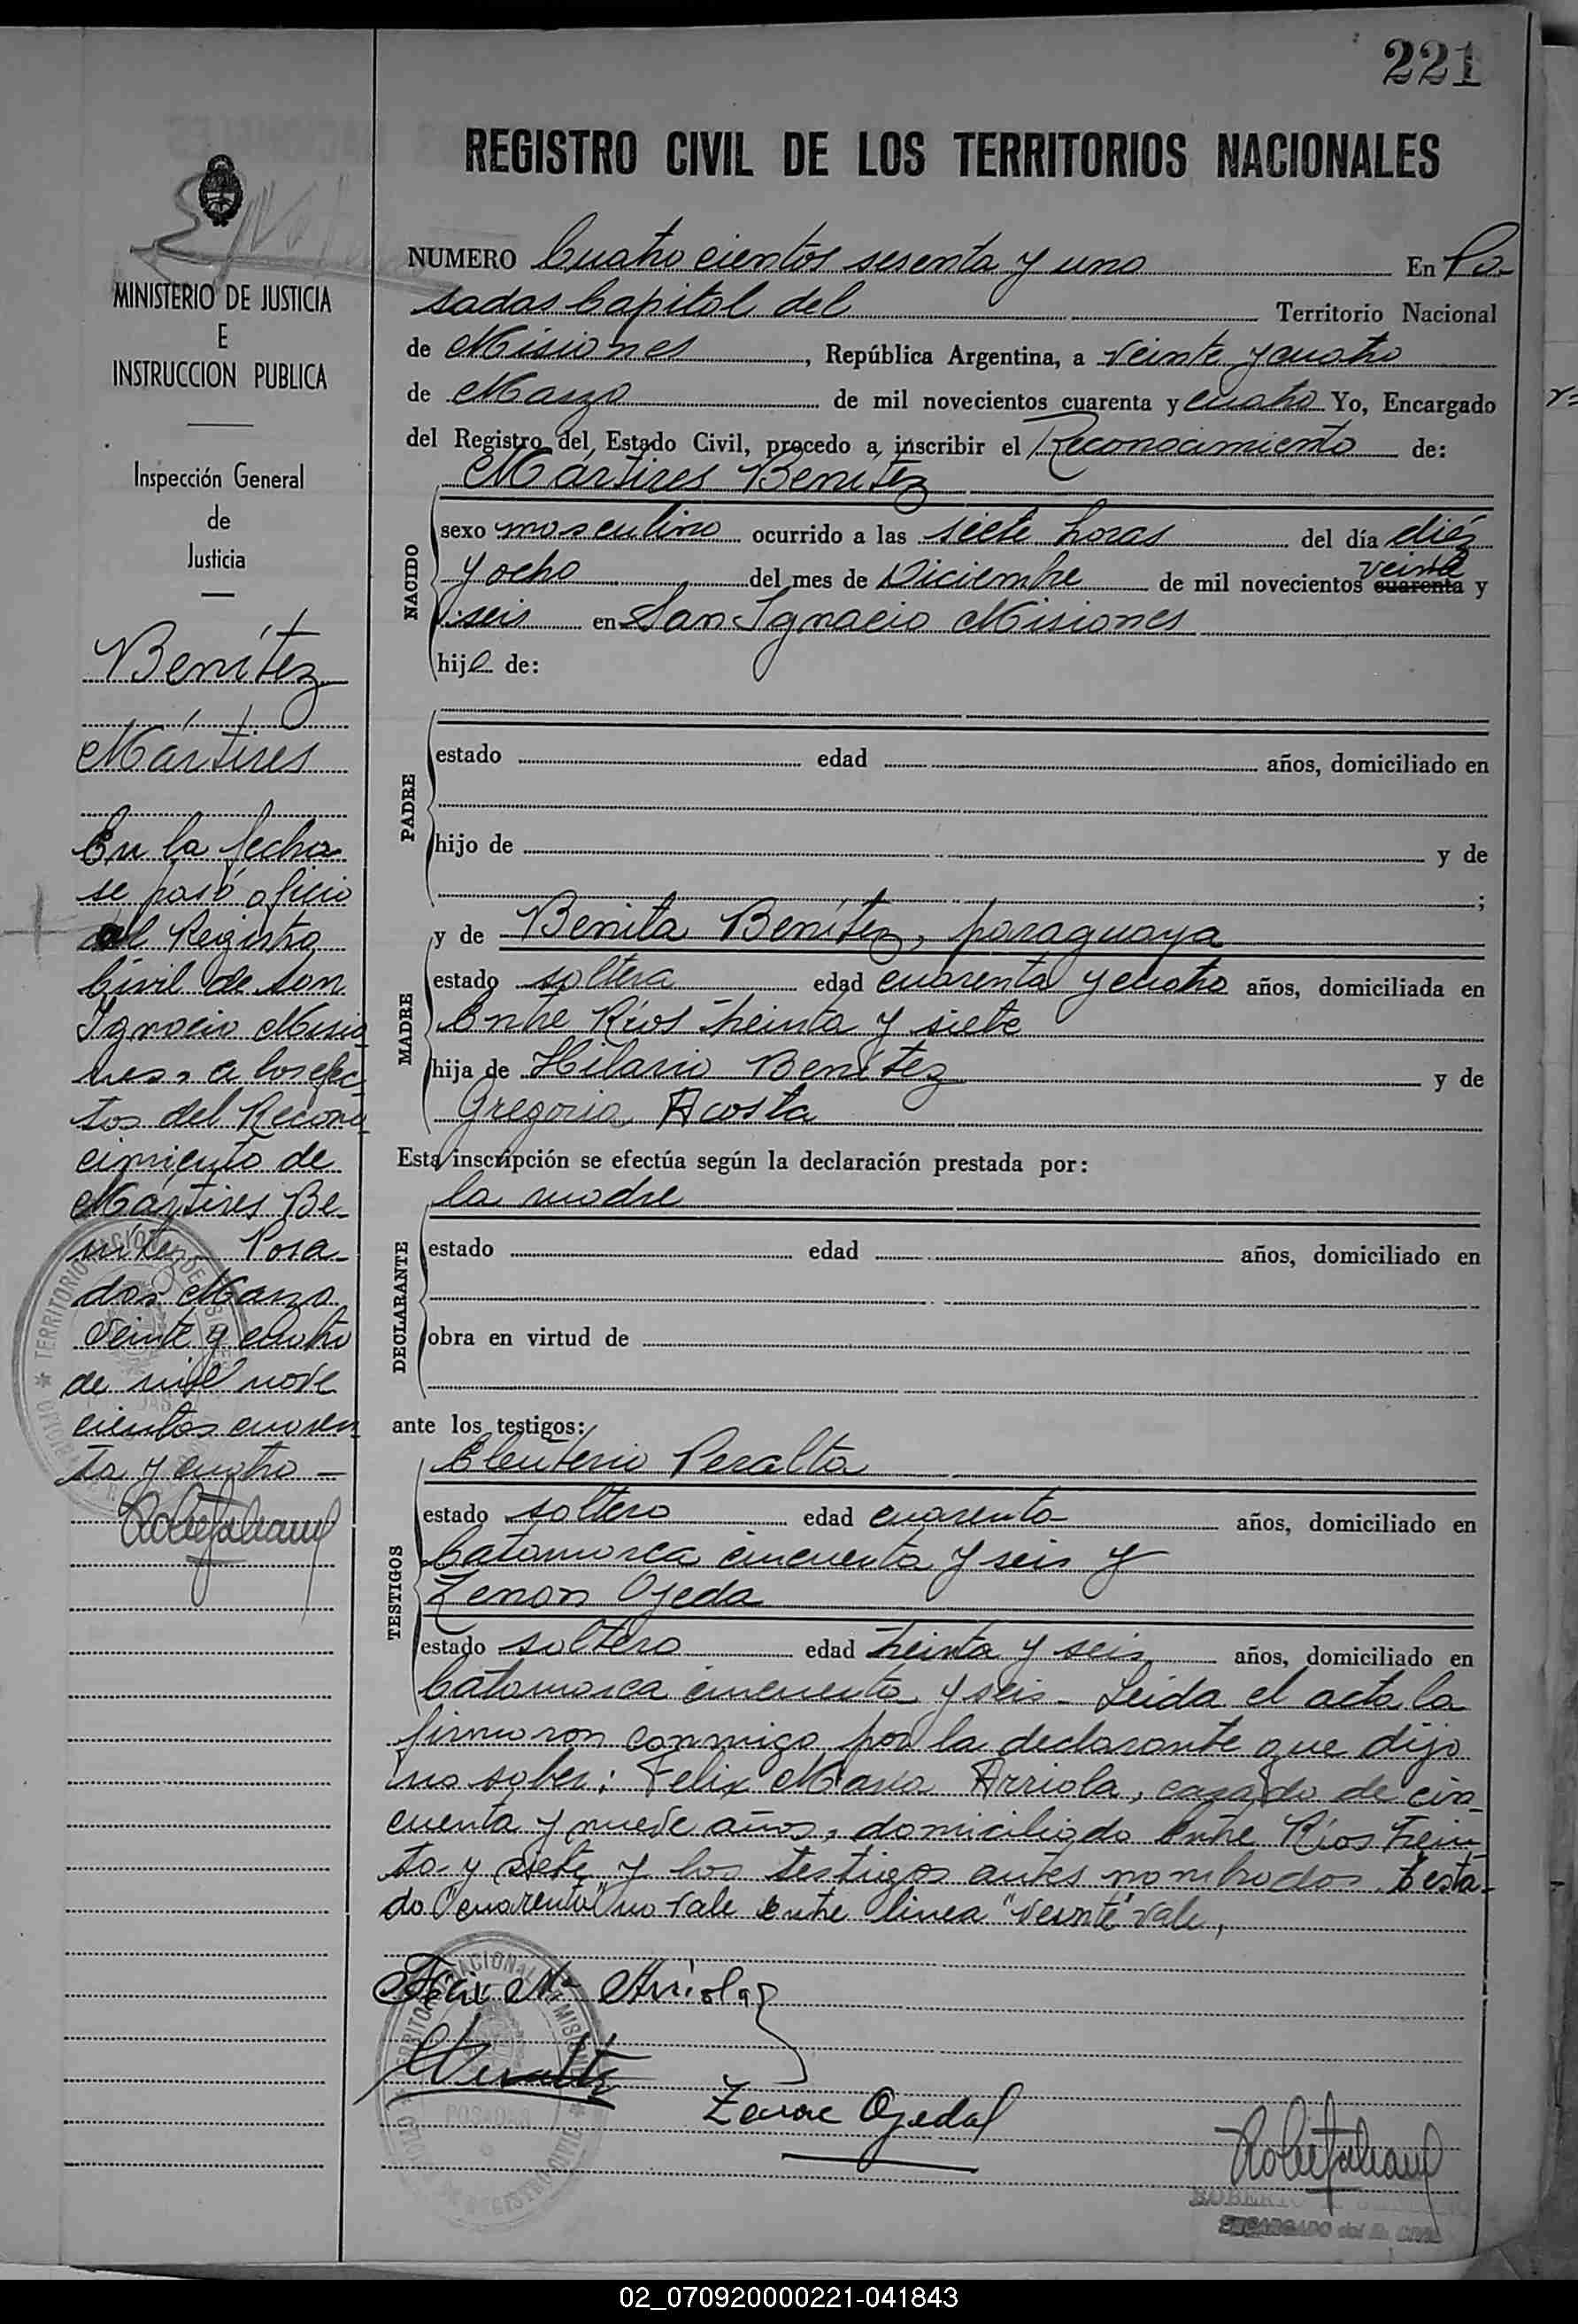 221
REGISTRO CIVIL DE LOS TERRITORIOS NACIONALES
MINISTERIO DE JUSTICIA
E
INSTRUCCION PUBLICA
Inspección General
de
Justicia
Benítez
Mártires
En la fecha
se pasó oficio
al Registro
Civil de San
Ignacio Misio
nes, a los efec
tos del Recono
cimiento de
Mártires Be-
nitez - Posa-
das Marzo
veinte y cuatro
de mil nove
cientos cuaren
ta y cuatro -
NUMERO Cuatrocientos sesenta y uno En Po-
sadas Capital del Territorio Nacional
de Misiones, República Argentina, a veinte y cuatro
de Marzo de mil novecientos cuarenta y cuatro Yo, Encargado
del Registro del Estado Civil, procedo a inscribir el Reconocimiento de:
Mártires Benítez
NACIDO
sexo masculino ocurrido a las siete horas del día diéz
veinte
y ocho del mes de Diciembre de mil novecientos cuarenta y
seis en San Ignacio Misiones
hijo de:
PADRE
estado edad años, domiciliado en
hijo de y de
;
y de Benita Benítez, paraguaya
MADRE
estado soltera edad cuarenta y cuatro años, domiciliada en
Entre Ríos treinta y siete
hija de Hilario Benítez y de
Gregoria Acosta
Esta inscripción se efectúa según la declaración prestada por:
la madre
DECLARANTE
estado edad años, domiciliado en
obra en virtud de
ante los testigos:
Eleuterio Peralta
TESTIGOS
estado soltero edad cuarenta años, domiciliado en
Catamarca cincuenta y seis y
Zenon Ojeda
estado soltero edad treinta y seis años, domiciliado en
Catamarca cincuenta y seis - Leida el acta la
firmaron conmigo por la declarante que dijo
no saber: Felix Maria Arriola, casado de cin-
cuenta y nueve años, domiciliado Entre Ríos trein
ta y siete y los testigos antes nombrados. Testa-
do "cuarenta" no vale entre linea "veinte" vale,
Felix Ma Arriola
Peralta
Ojeda
ENCARGADO del R. CIVIL
02_070920000221-041843